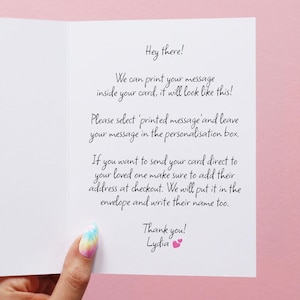 Hey there!
We can print your message
inside your card, it will look like this!
Please select 'printed message' and leave
your message in the personalisation box.
If you want to send your card direct to
your loved one make sure to add their
address at checkout. We will put it in the
envelope and write their name too.
Thank you!
Lydia 💕